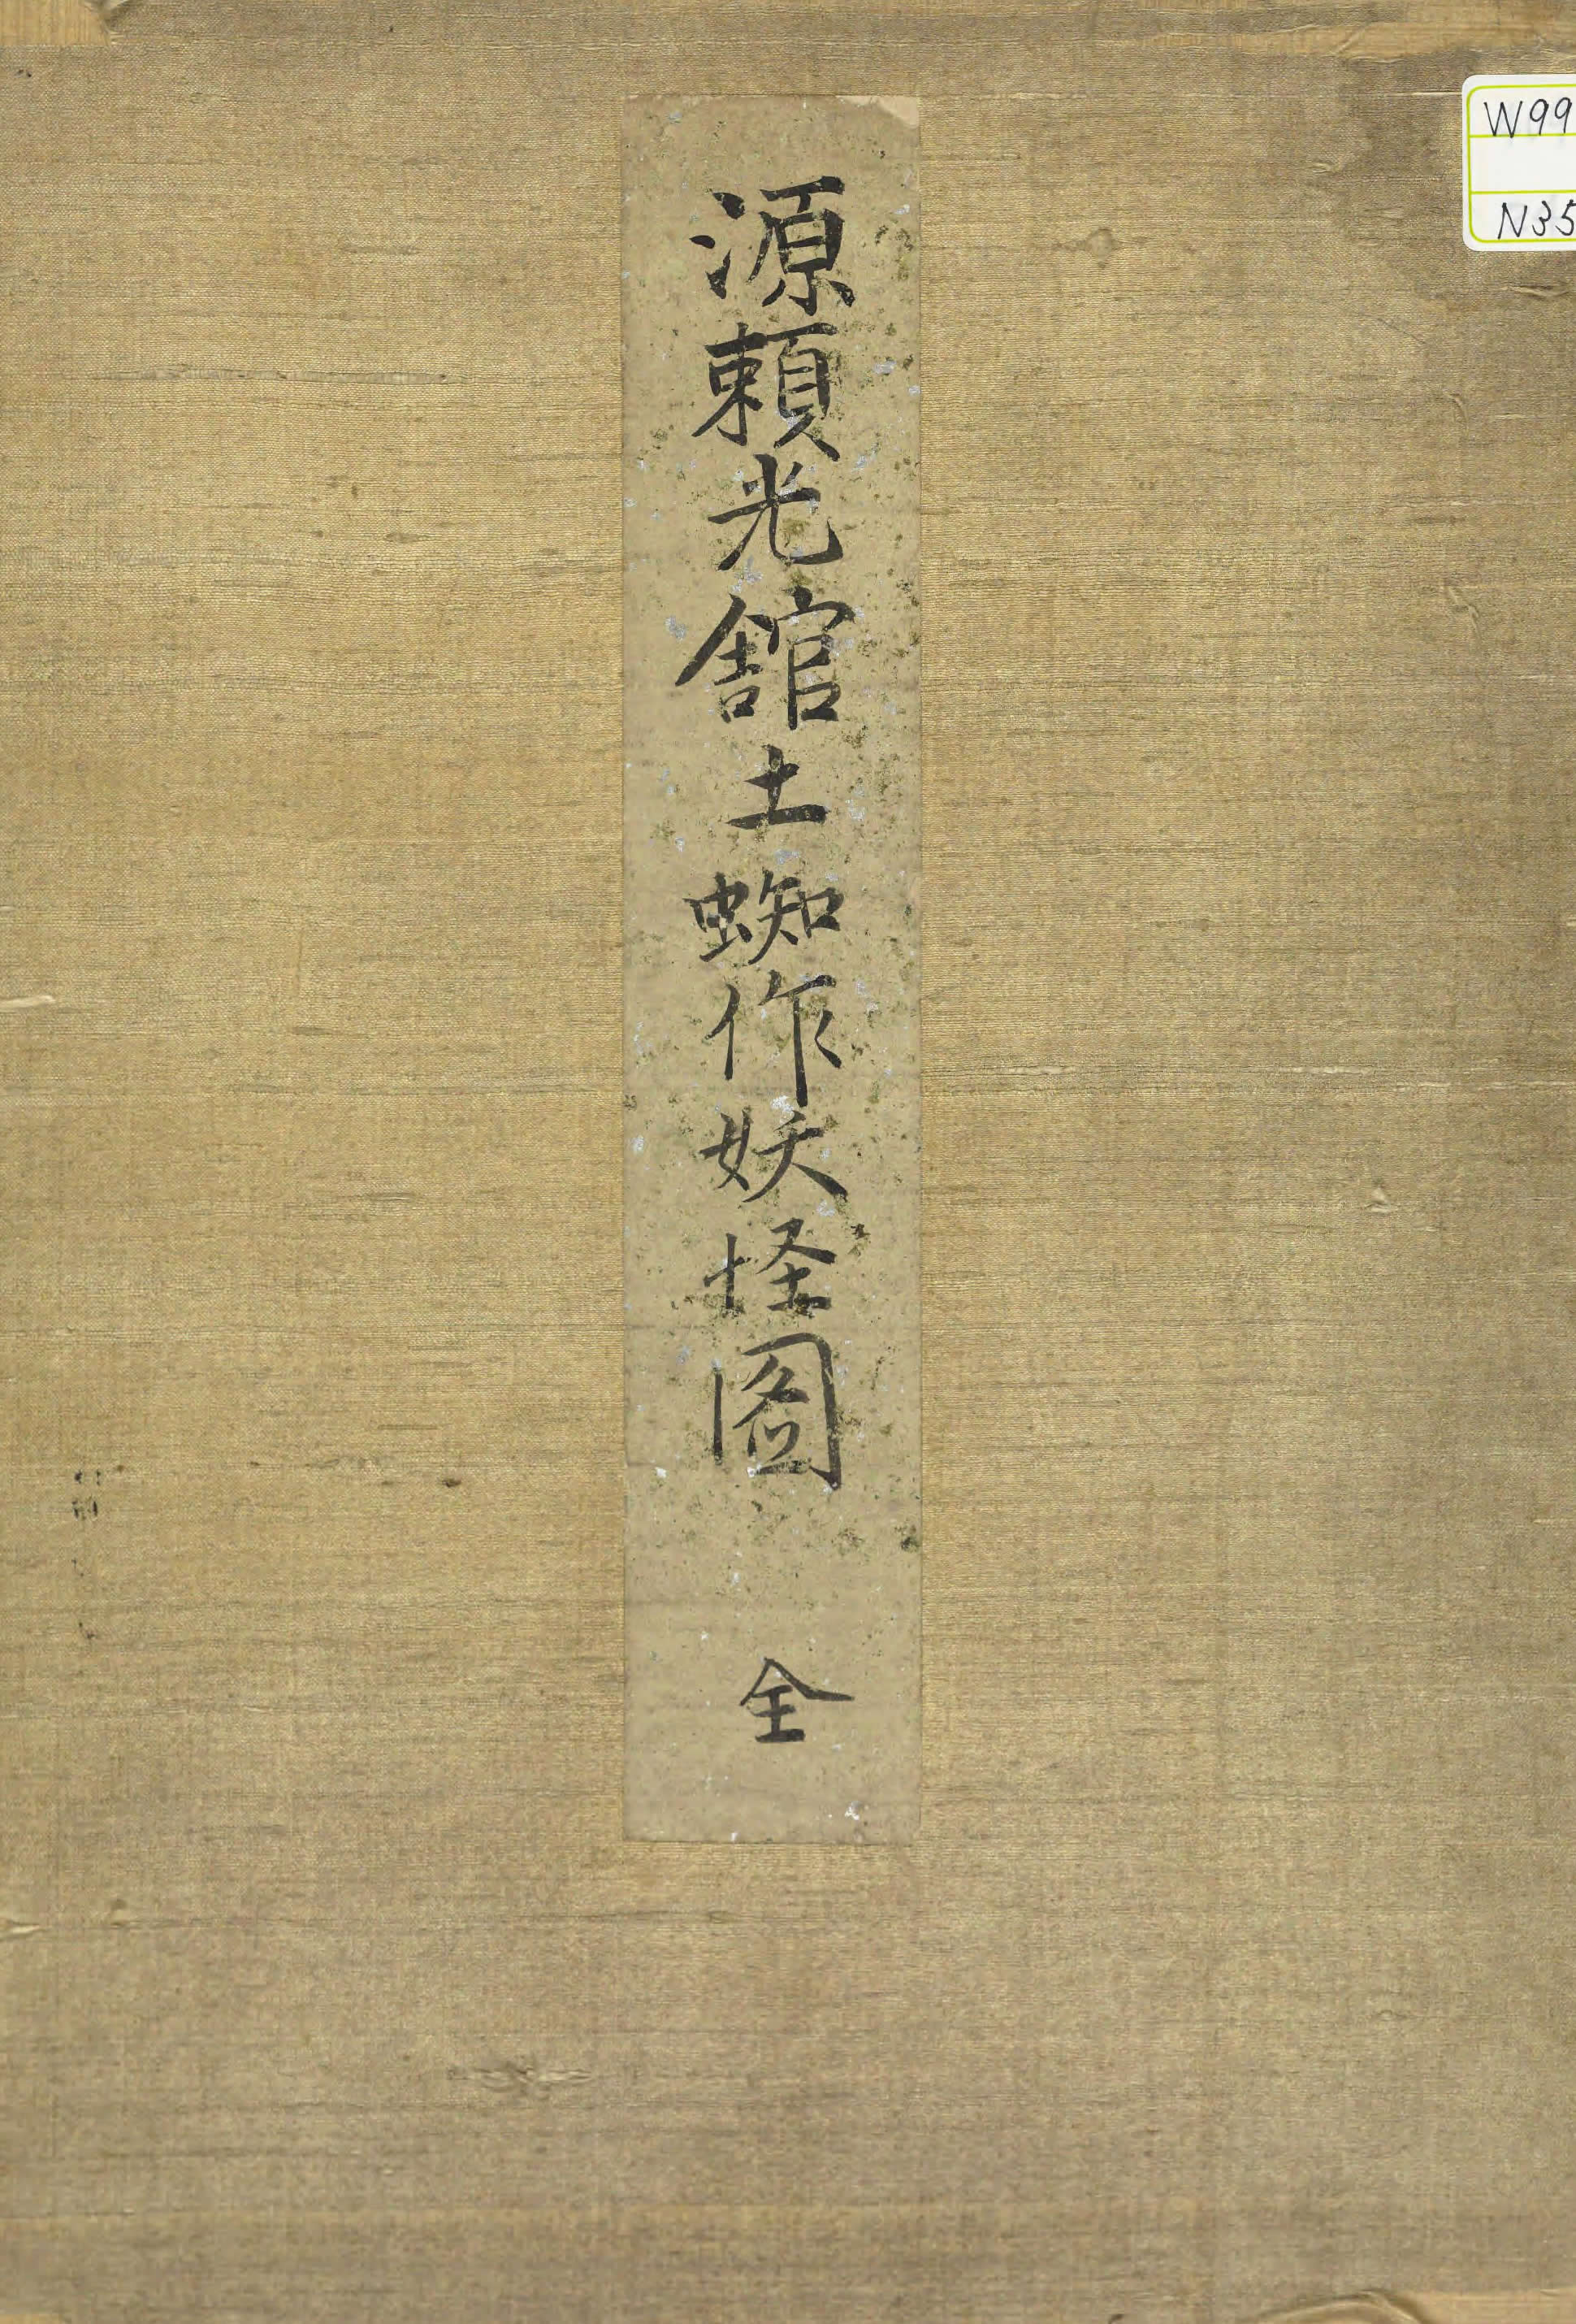 源頼光舘土蜘作妖怪圖 全
W99
N35